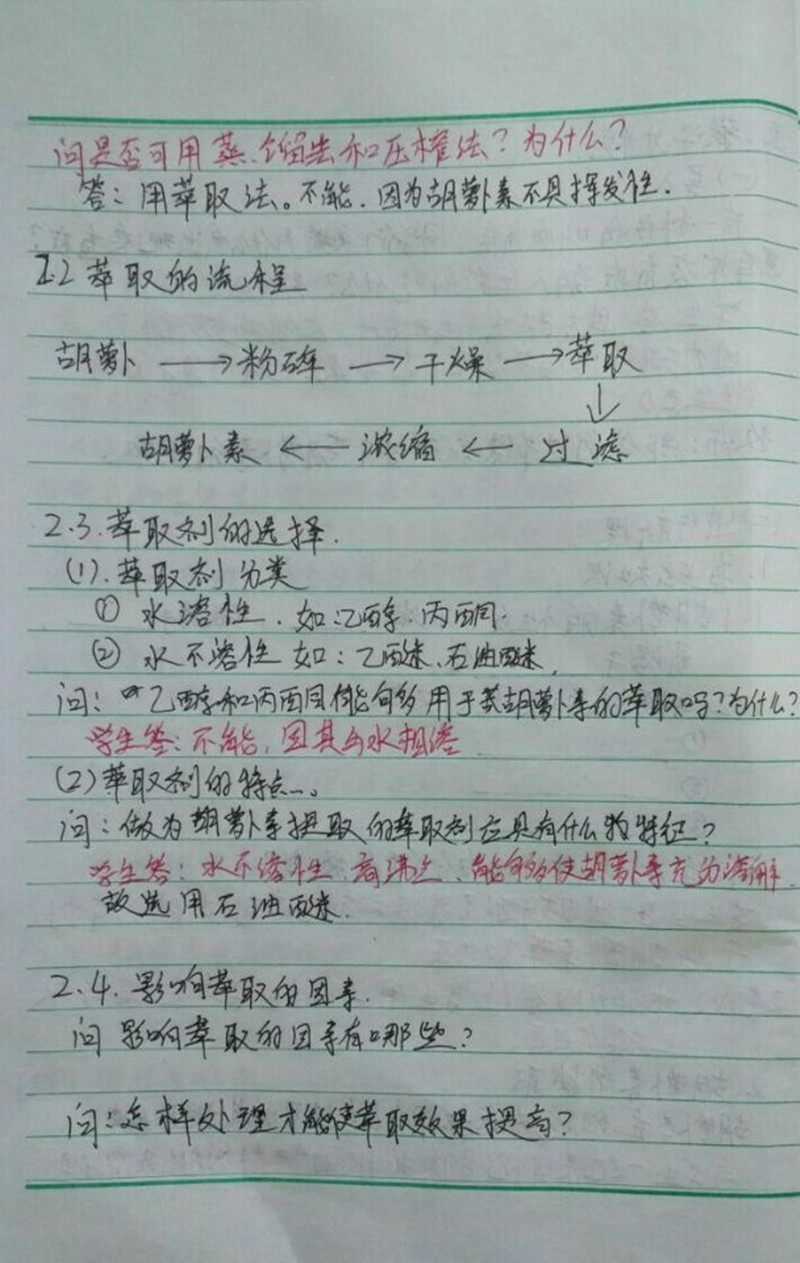 问是否可用蒸馏法和压榨法?为什么?
答:用萃取法。不能.因为胡萝卜素不具挥发性.
2.2 萃取的流程
胡萝卜 → 粉碎 → 干燥 → 萃取
↓
胡萝卜素 ← 浓缩 ← 过滤
2.3.萃取剂的选择.
(1).萃取剂分类
① 水溶性.如:乙醇.丙酮.
② 水不溶性 如:乙醚、石油醚.
问:乙醇和丙酮能够用于胡萝卜素的萃取吗?为什么?
学生答:不能,因其与水相溶
(2)萃取剂的特点。
问:做为胡萝卜素提取的萃取剂应具有什么特征?
学生答:水不溶性、高沸点、能够使胡萝卜素充分溶解.
故选用石油醚.
2.4.影响萃取的因素.
问 影响萃取的因素有哪些?
问:怎样处理才能使萃取效果提高?